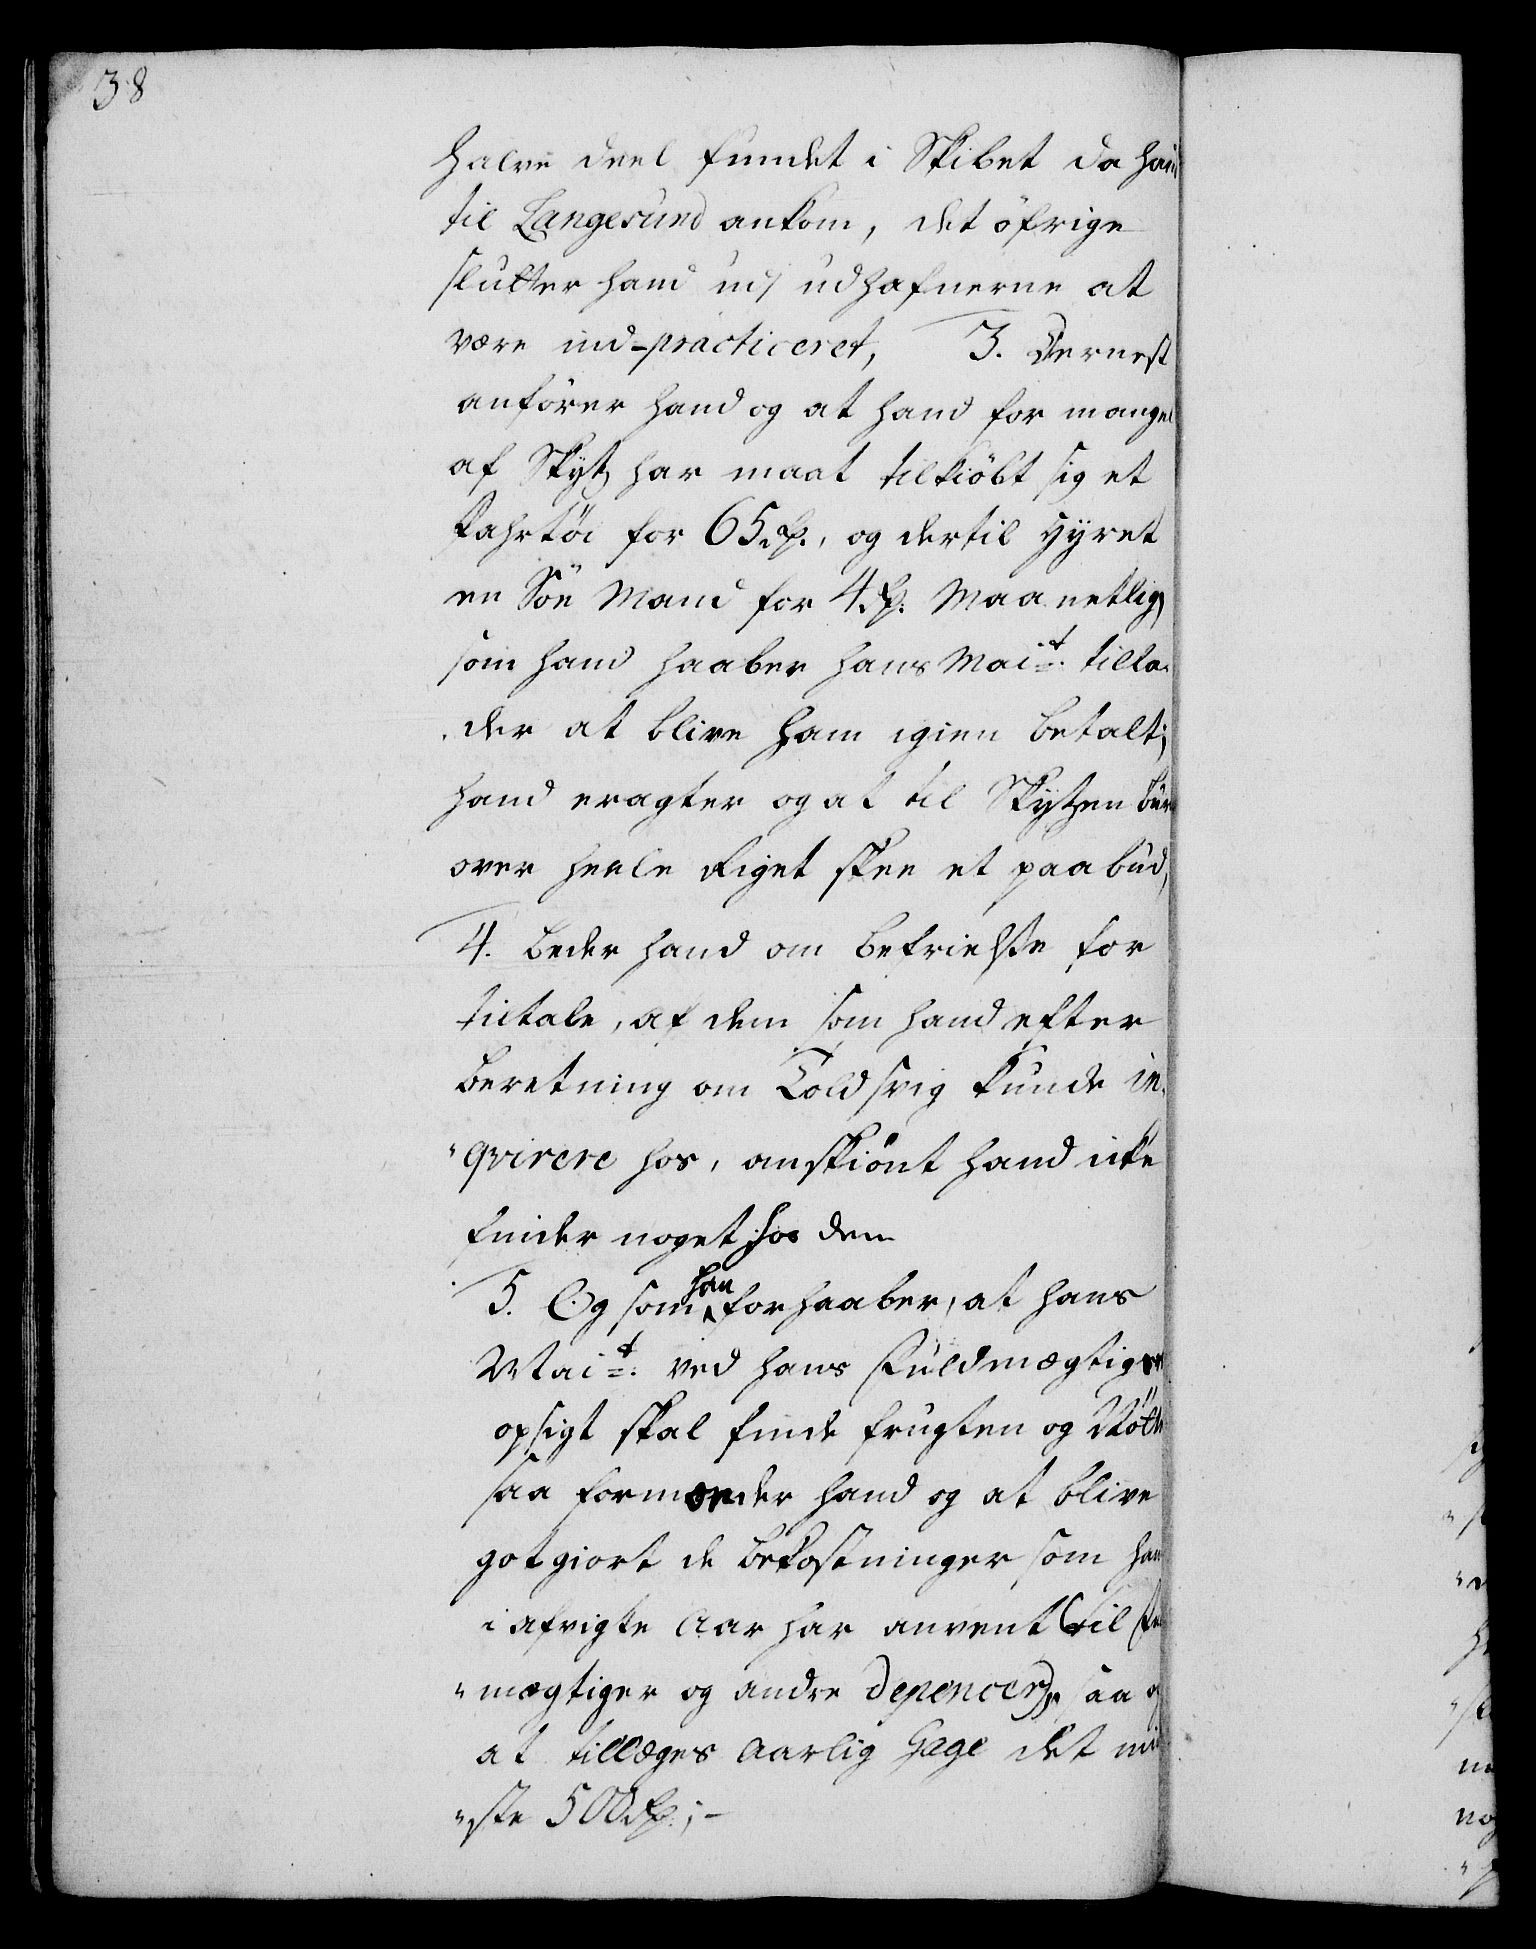 38
halve deel fundet i Skibet da hand
til Langesund ankom, det öfrige
slutter hand ud udhafnerne at
være ind-practiceret, 3. Dernest
anförer hand og at hand for mangel
af Skytz har maat tilkiöbt sig et
Fahrtöi for 65 rd., og dertil hyret
en Söe Mand for 4 rd. Maanetlig
som hand haaber hans Mai.t tilla-
der at blive ham igien betalt;
hand eragter og at til Skytzen bör
over heele Riget skee et paabud,
4. Beder hand om befrielse for
tiltale, af dem som hand efter
beretning om Toldsvig kunde in-
qvirere hos, omskiönt hand icke
finder noget hos dem
5. Og som han forhaaber, at hans
Mai.t ved hans Fuldmægtiges
opsigt skal finde frugten og Nötte
saa formeender hand og at blive
gotgiort de bekostninger som han
i afvigte Aar har anvent (til Fu
mægtiger og andre depencer), saa og
at tillæges aarlig Gage det min
ste 500 rd.;-